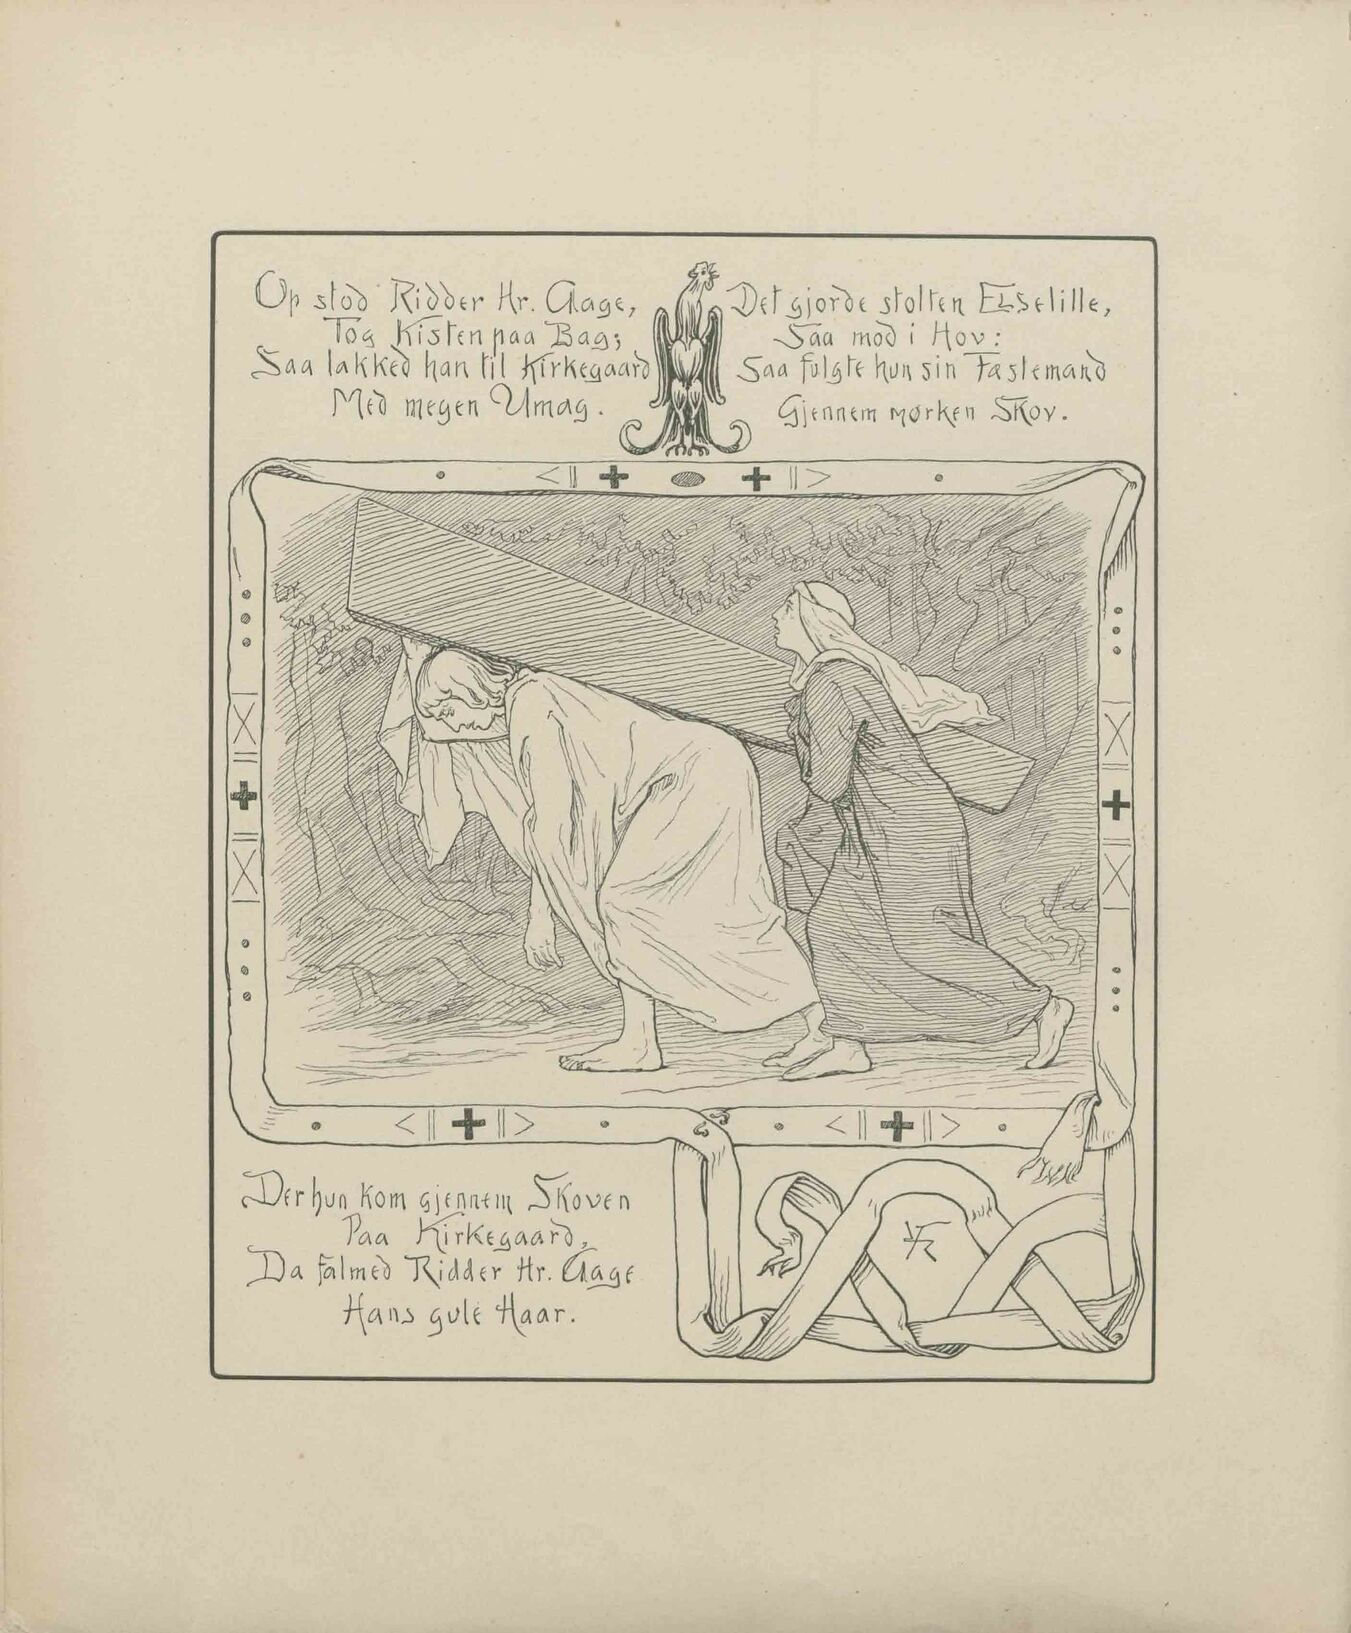 Op stod Ridder Hr. Aage,
Tog Kisten paa Bag;
Saa lakked han til Kirkegaard
Med megen Umag.
Det gjorde stolten Elselille,
Saa mod i Hov:
Saa fulgte hun sin Fæstemand
Gjennem mørken Skov.
Der hun kom gjennem Skoven
Paa Kirkegaard,
Da falmed Ridder Hr. Aage
Hans gule Haar.